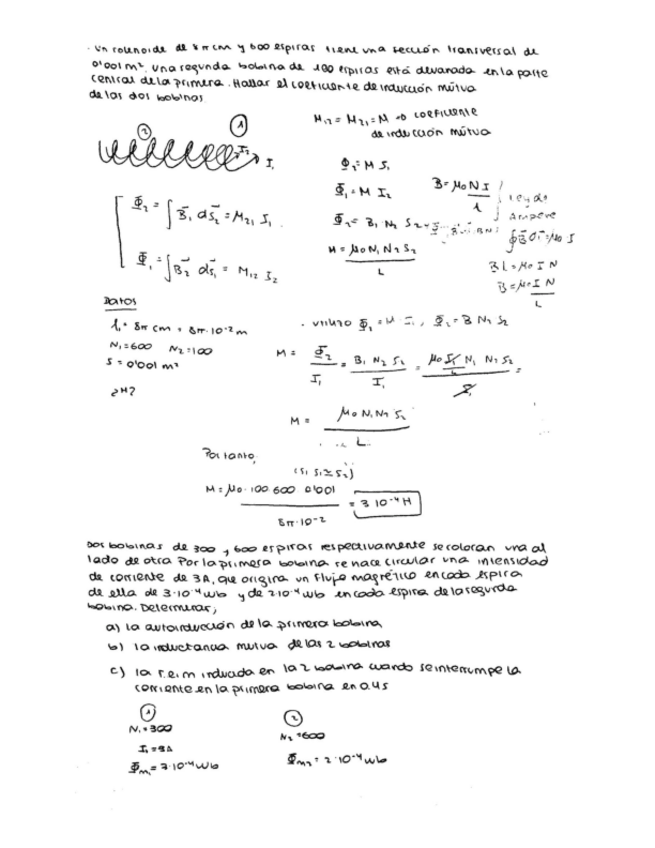 · Un solenoide de 8π cm y 600 espiras tiene una sección transversal de
0'001 m². Una segunda bobina de 100 espiras está devanada en la parte
central de la primera. Hallar el coeficiente de inducción mútua
de las dos bobinas
M₁₂ = M₂₁ = M → coeficiente
de inducción mútua
② ①
I₂ I₁
Φ₂ = M I₁
Φ₁ = M I₂
B = μ₀ N I / l
Ley de
Ampere
∮ B dl = μ₀ I
B L = μ₀ I N
B = μ₀ I N / L
Φ₂ = ∫ B₁ dS₂ = M₂₁ I₁
Φ₁ = ∫ B₂ dS₁ = M₁₂ I₂
Φ₂ = B₁ N₂ S₂
M = μ₀ N₁ N₂ S₂ / L
Datos
l₁ = 8π cm = 8π·10⁻² m
N₁ = 600 N₂ = 100
S = 0'001 m²
¿M?
M = Φ₂ / I₁ = B₁ N₂ S₂ / I₁ =
M = μ₀ N₁ N₂ S₂ / L
Por tanto,
(S₁ ≃ S₂)
M = μ₀ · 100 · 600 · 0'001 / 8π·10⁻² = 3·10⁻⁴ H
Dos bobinas de 300 y 600 espiras respectivamente se colocan una al
lado de otra. Por la primera bobina se hace circular una intensidad
de corriente de 3A, que origina un flujo magnético en cada espira
de ella de 3·10⁻⁴ wb y de 2·10⁻⁴ wb en cada espira de la segunda
bobina. Determinar;
a) la autoinducción de la primera bobina
b) la inductancia mutua de las 2 bobinas
c) la f.e.i.m inducida en la 2 bobina cuando se interrumpe la
corriente en la primera bobina en 0.4 s
① ②
N₁ = 300 N₂ = 600
I₁ = 3A
Φm₁ = 3·10⁻⁴ wb Φm₂ = 2·10⁻⁴ wb